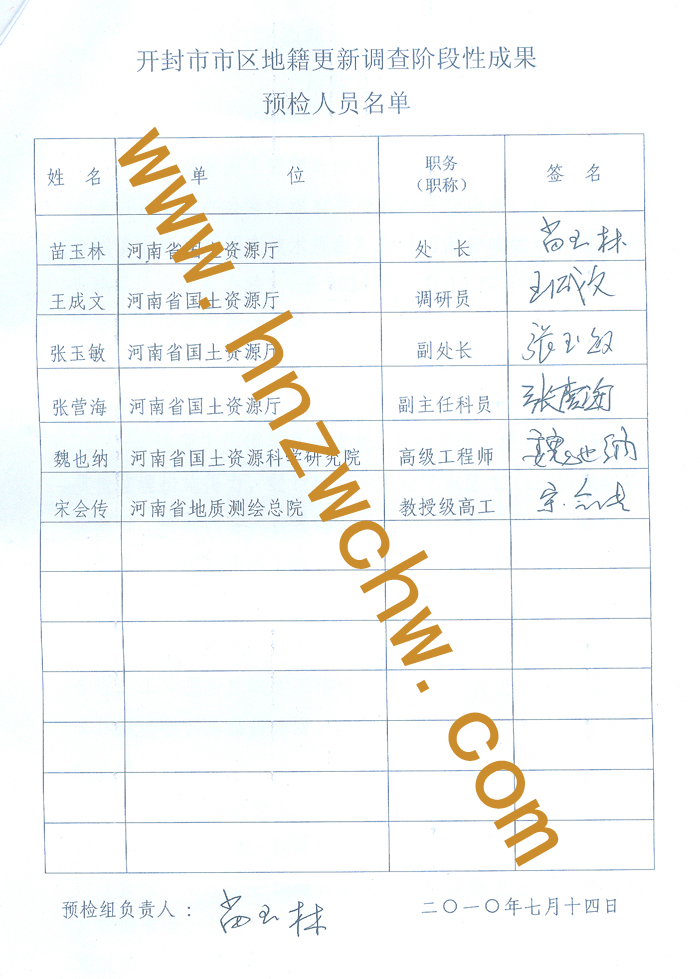 开封市市区地籍更新调查阶段性成果
预检人员名单
姓 名 单 位 职务（职称） 签 名
苗玉林 河南省国土资源厅 处 长 苗玉林
王成文 河南省国土资源厅 调研员 王成文
张玉敏 河南省国土资源厅 副处长 张玉敏
张营海 河南省国土资源厅 副主任科员 张营海
魏也纳 河南省国土资源科学研究院 高级工程师 魏也纳
宋会传 河南省地质测绘总院 教授级高工 宋会传
预检组负责人： 苗玉林 二〇一〇年七月十四日
www.hnzwchw.com